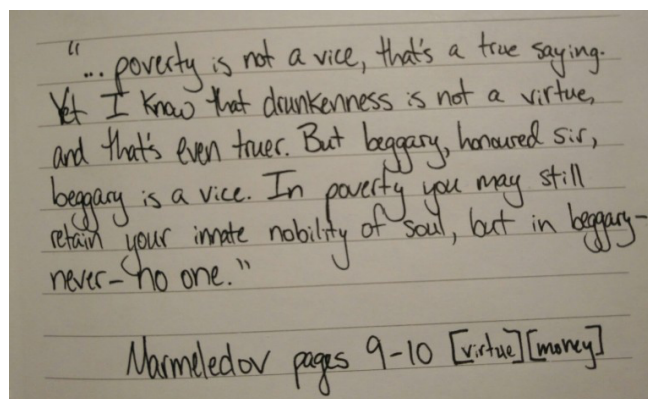 "... poverty is not a vice, that's a true saying.
Yet I know that drunkenness is not a virtue,
and that's even truer. But beggary, honoured sir,
beggary is a vice. In poverty you may still
retain your innate nobility of soul, but in beggary-
never-no one."
Marmeledov pages 9-10 [virtue][money]